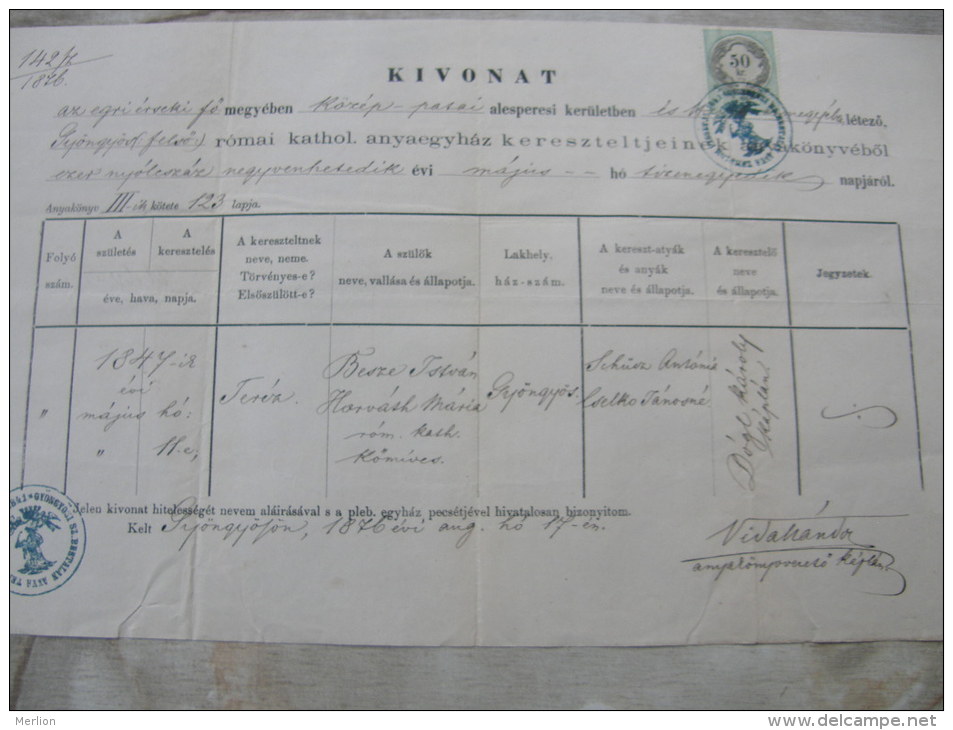 142/h
1876.
KIVONAT
50
kr.
az egri érseki fő megyében Közép-patai alesperesi kerületben létező,
Gyöngyös (felső) római kathol. anyaegyház kereszteltjeinek anyakönyvéből
ezer nyólczáz negyvenhetedik évi május -- hó tizenegyedik napjáról.
Anyakönyv III-ik kötete 123 lapja.
Folyó szám.
A születés
A keresztelés
éve, hava, napja.
A kereszteltnek neve, neme. Törvényes-e? Elsőszülött-e?
A szülők neve, vallása és állapotja.
Lakhely, ház-szám.
A kereszt-atyák és anyák neve és állapotja.
A keresztelő neve és állapotja.
Jegyzetek.
1847-ik
évi
május hó:
" " 11.-e,
Teréz
Besze István
Horváth Mária
róm. kath.
Kőmíves.
Gyöngyös.
Schüsz Antónia
Cselko Jánosné
Dógl Károly
káplán
Jelen kivonat hitelességét nevem aláirásával s a pleb. egyház pecsétjével hivatalosan bizonyitom.
Kelt Gyöngyösön, 1876 évi aug. hó 17-én.
Vida Nándor
anyakönyvvezető káplán
Merlion
www.delcampe.net